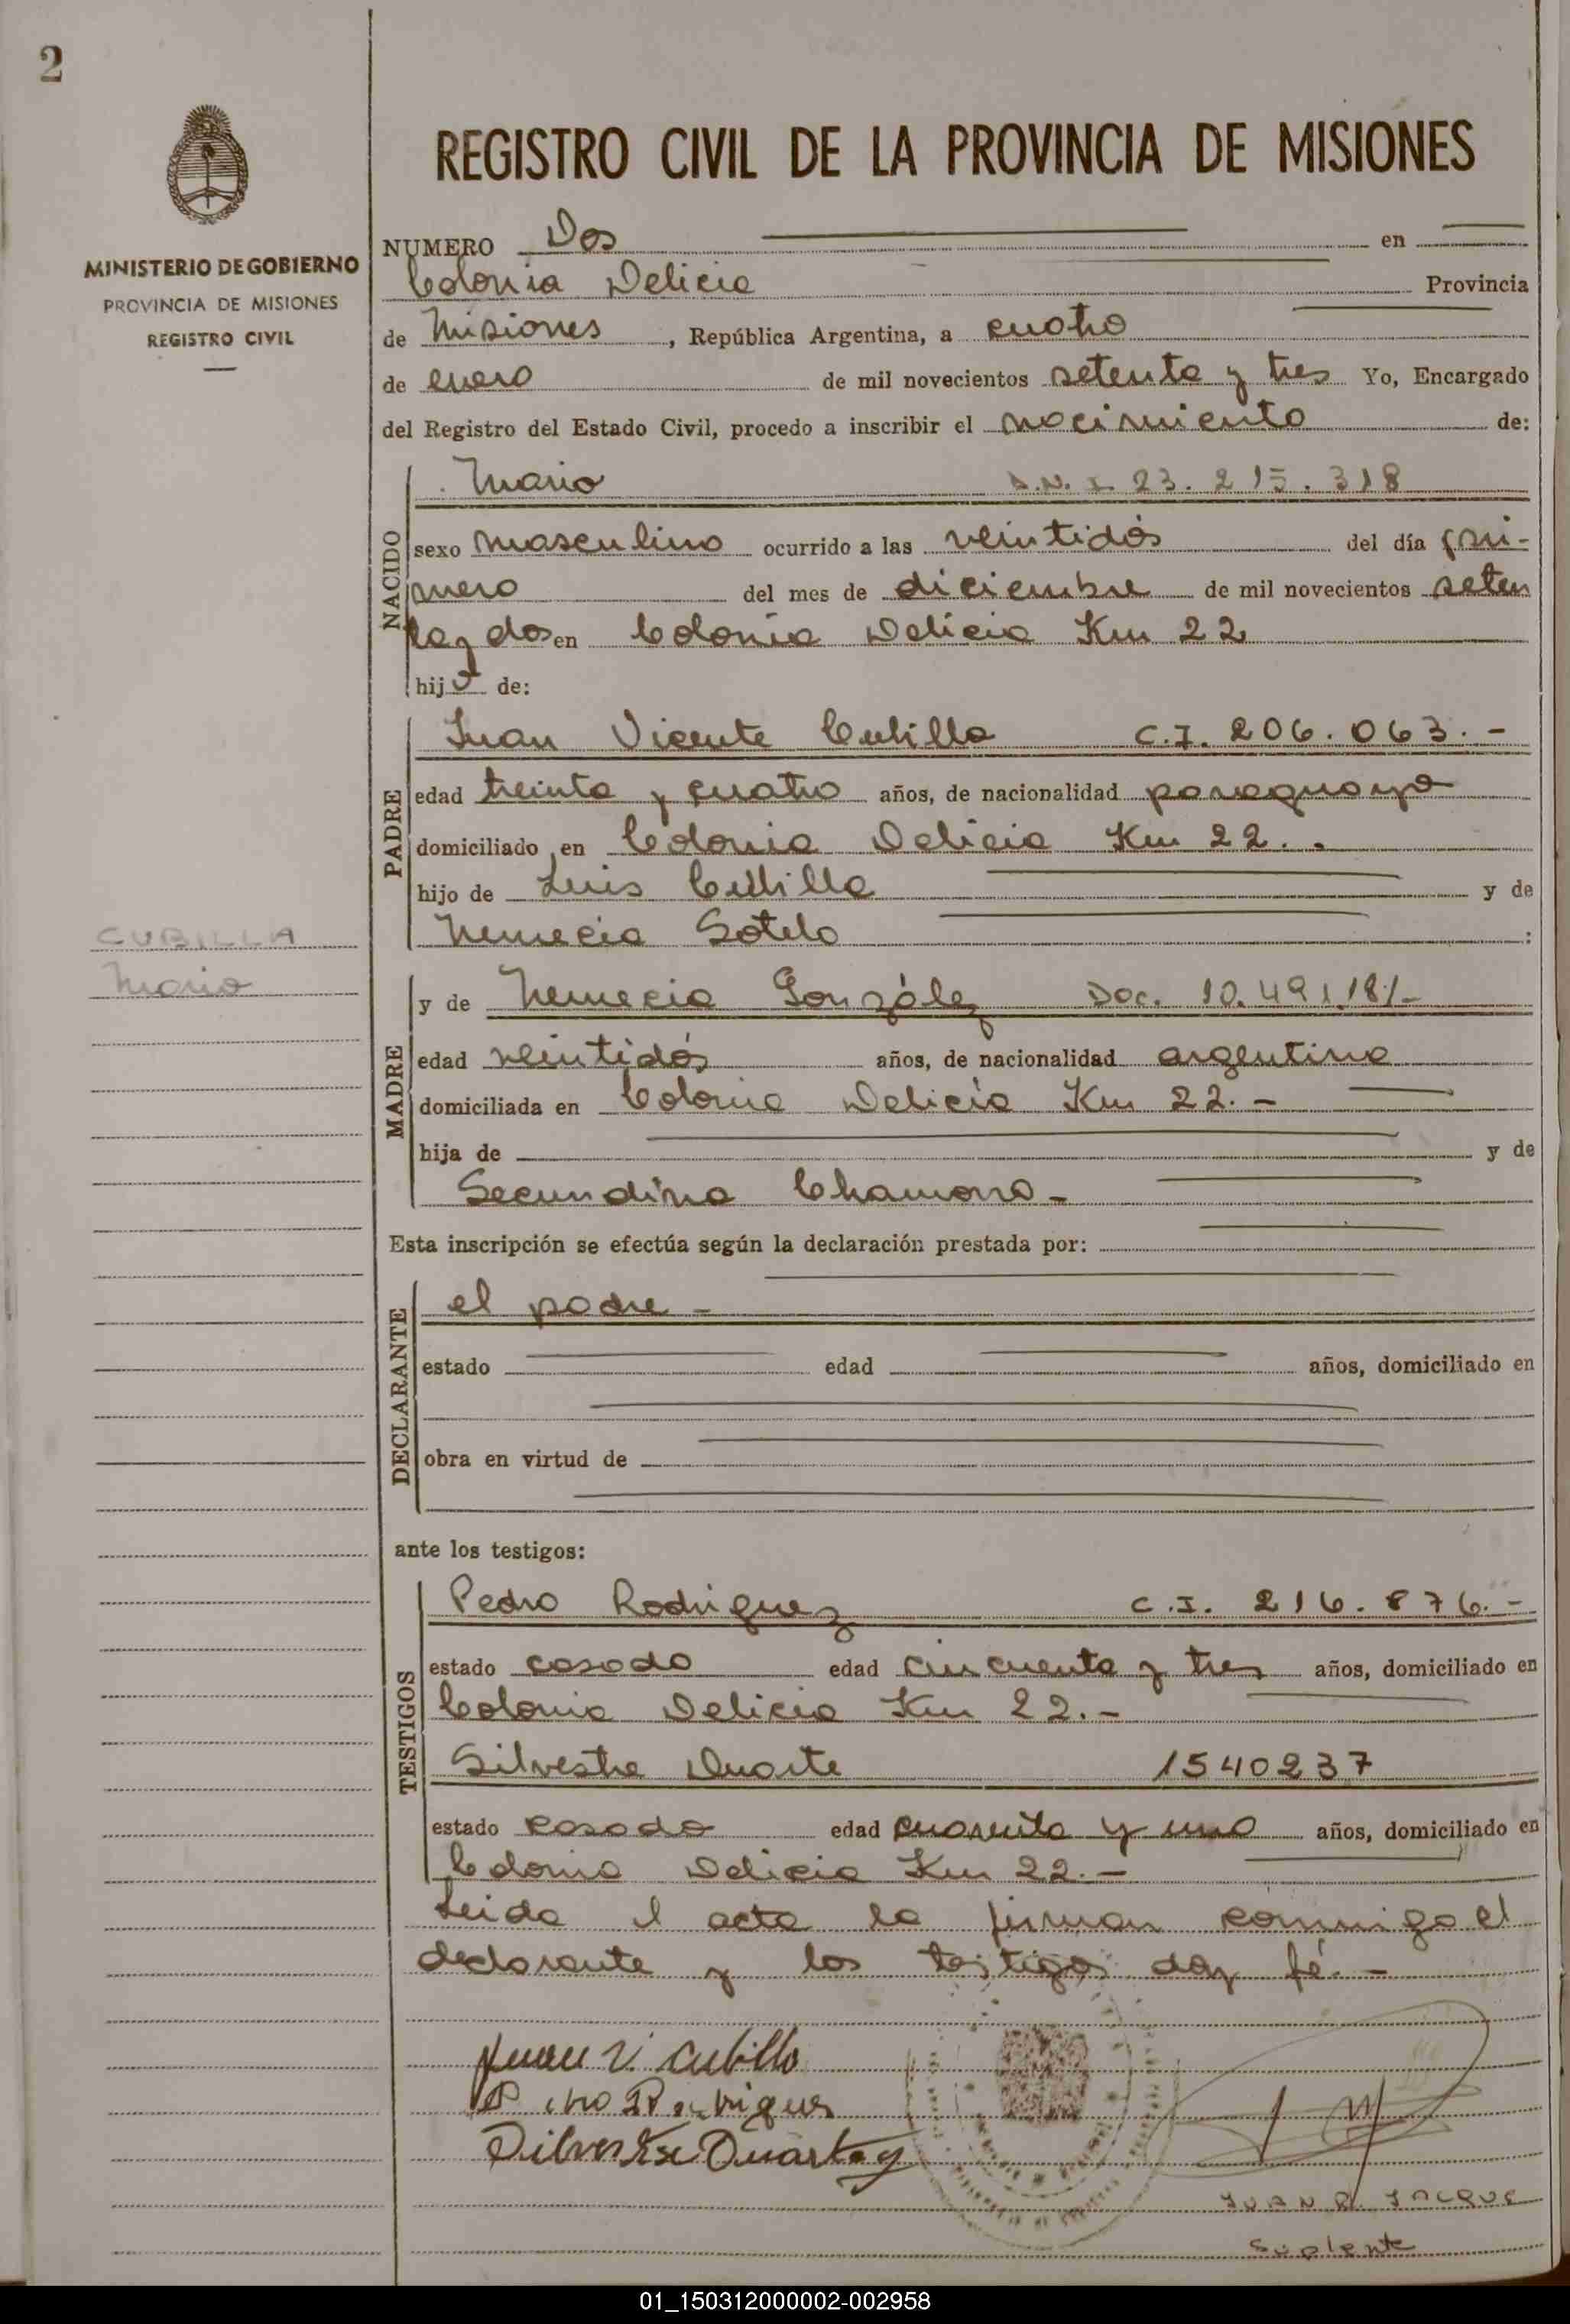 2
MINISTERIO DE GOBIERNO
PROVINCIA DE MISIONES
REGISTRO CIVIL
CUBILLA
Mario
REGISTRO CIVIL DE LA PROVINCIA DE MISIONES
NUMERO Dos en
Colonia Delicia Provincia
de Misiones, República Argentina, a cuatro
de enero de mil novecientos setenta y tres Yo, Encargado
del Registro del Estado Civil, procedo a inscribir el nacimiento de:
NACIDO
Mario D.N.I. 23.215.318
sexo masculino ocurrido a las veintidós del día pri-
mero del mes de diciembre de mil novecientos seten
ta y dos en Colonia Delicia Km 22
hijo de:
PADRE
Juan Vicente Cubilla C.I. 206.063.-
edad treinta y cuatro años, de nacionalidad paraguaya
domiciliado en Colonia Delicia Km 22.
hijo de Luis Cubilla y de
Nemecia Sotelo ;
MADRE
y de Nemecia González Doc. 10.491.181-
edad veintidós años, de nacionalidad argentina
domiciliada en Colonia Delicia Km 22.-
hija de y de
Secundina Chamorro-
Esta inscripción se efectúa según la declaración prestada por:
DECLARANTE
el padre-
estado edad años, domiciliado en
obra en virtud de
ante los testigos:
TESTIGOS
Pedro Rodriguez C.I. 216.876.-
estado casado edad cincuenta y tres años, domiciliado en
Colonia Delicia Km 22.-
Silvestre Duarte 1540237
estado casado edad cuarenta y uno años, domiciliado en
Colonia Delicia Km 22.-
Leida el acta la firman conmigo el
declarante y los testigos doy fé.-
Juan V. Cubilla
Silvestre Duarte
JUAN R. JACQUE
Suplente
01_150312000002-002958